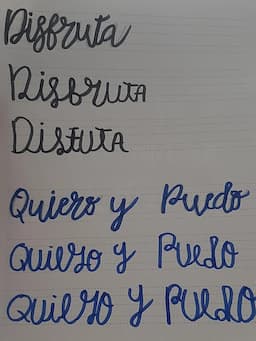 Disfruta
Disfruta
Disfuta
Quiero y Puedo
Quiero y Puedo
Quiero y Puedo